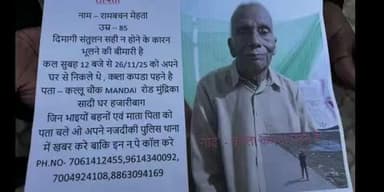 नाम – रामबचन मेहता
उम्र – 85
दिमागी संतुलन सही न होने के कारन
भूलने की बीमारी है
कल सुबह 12 बजे से 26/11/25 को अपने
घर से निकले थे , कला कपडा पहने है
पता – कल्लू चोक MANDAI रोड मुंद्रिका
सादी घर हजारीबाग
जिन भाइयों बहनों एवं माता पिता को
पता चले ओ अपने नजदीकी पुलिस थाना
में खबर करे बाकि इन न.पे कॉल करे
PH.NO- 7061412455,9614340092,
7004924108,8863094169